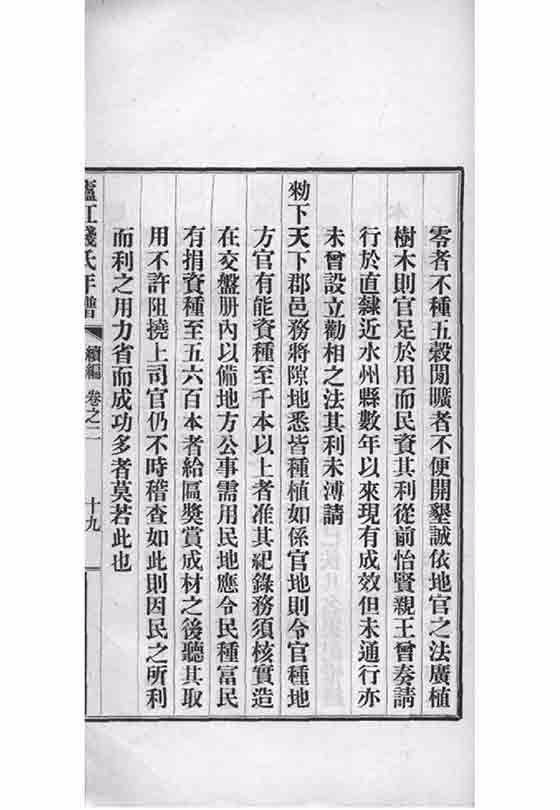 零者不種五穀閒曠者不便開墾誠依地官之法廣植
樹木則官足於用而民資其利從前怡賢親王曾奏請
行於直隸近水州縣數年以來現有成效但未通行亦
未曾設立勸相之法其利未溥請
勑下天下郡邑務將隙地悉皆種植如係官地則令官種地
方官有能資種至千本以上者准其紀錄務須核實造
在交盤册內以備地方公事需用民地應令民種富民
有捐資種至五六百本者給匾獎賞成材之後聽其取
用不許阻撓上司官仍不時稽查如此則因民之所利
而利之用力省而成功多者莫若此也
廬江錢氏年譜 續編 卷之二 十九